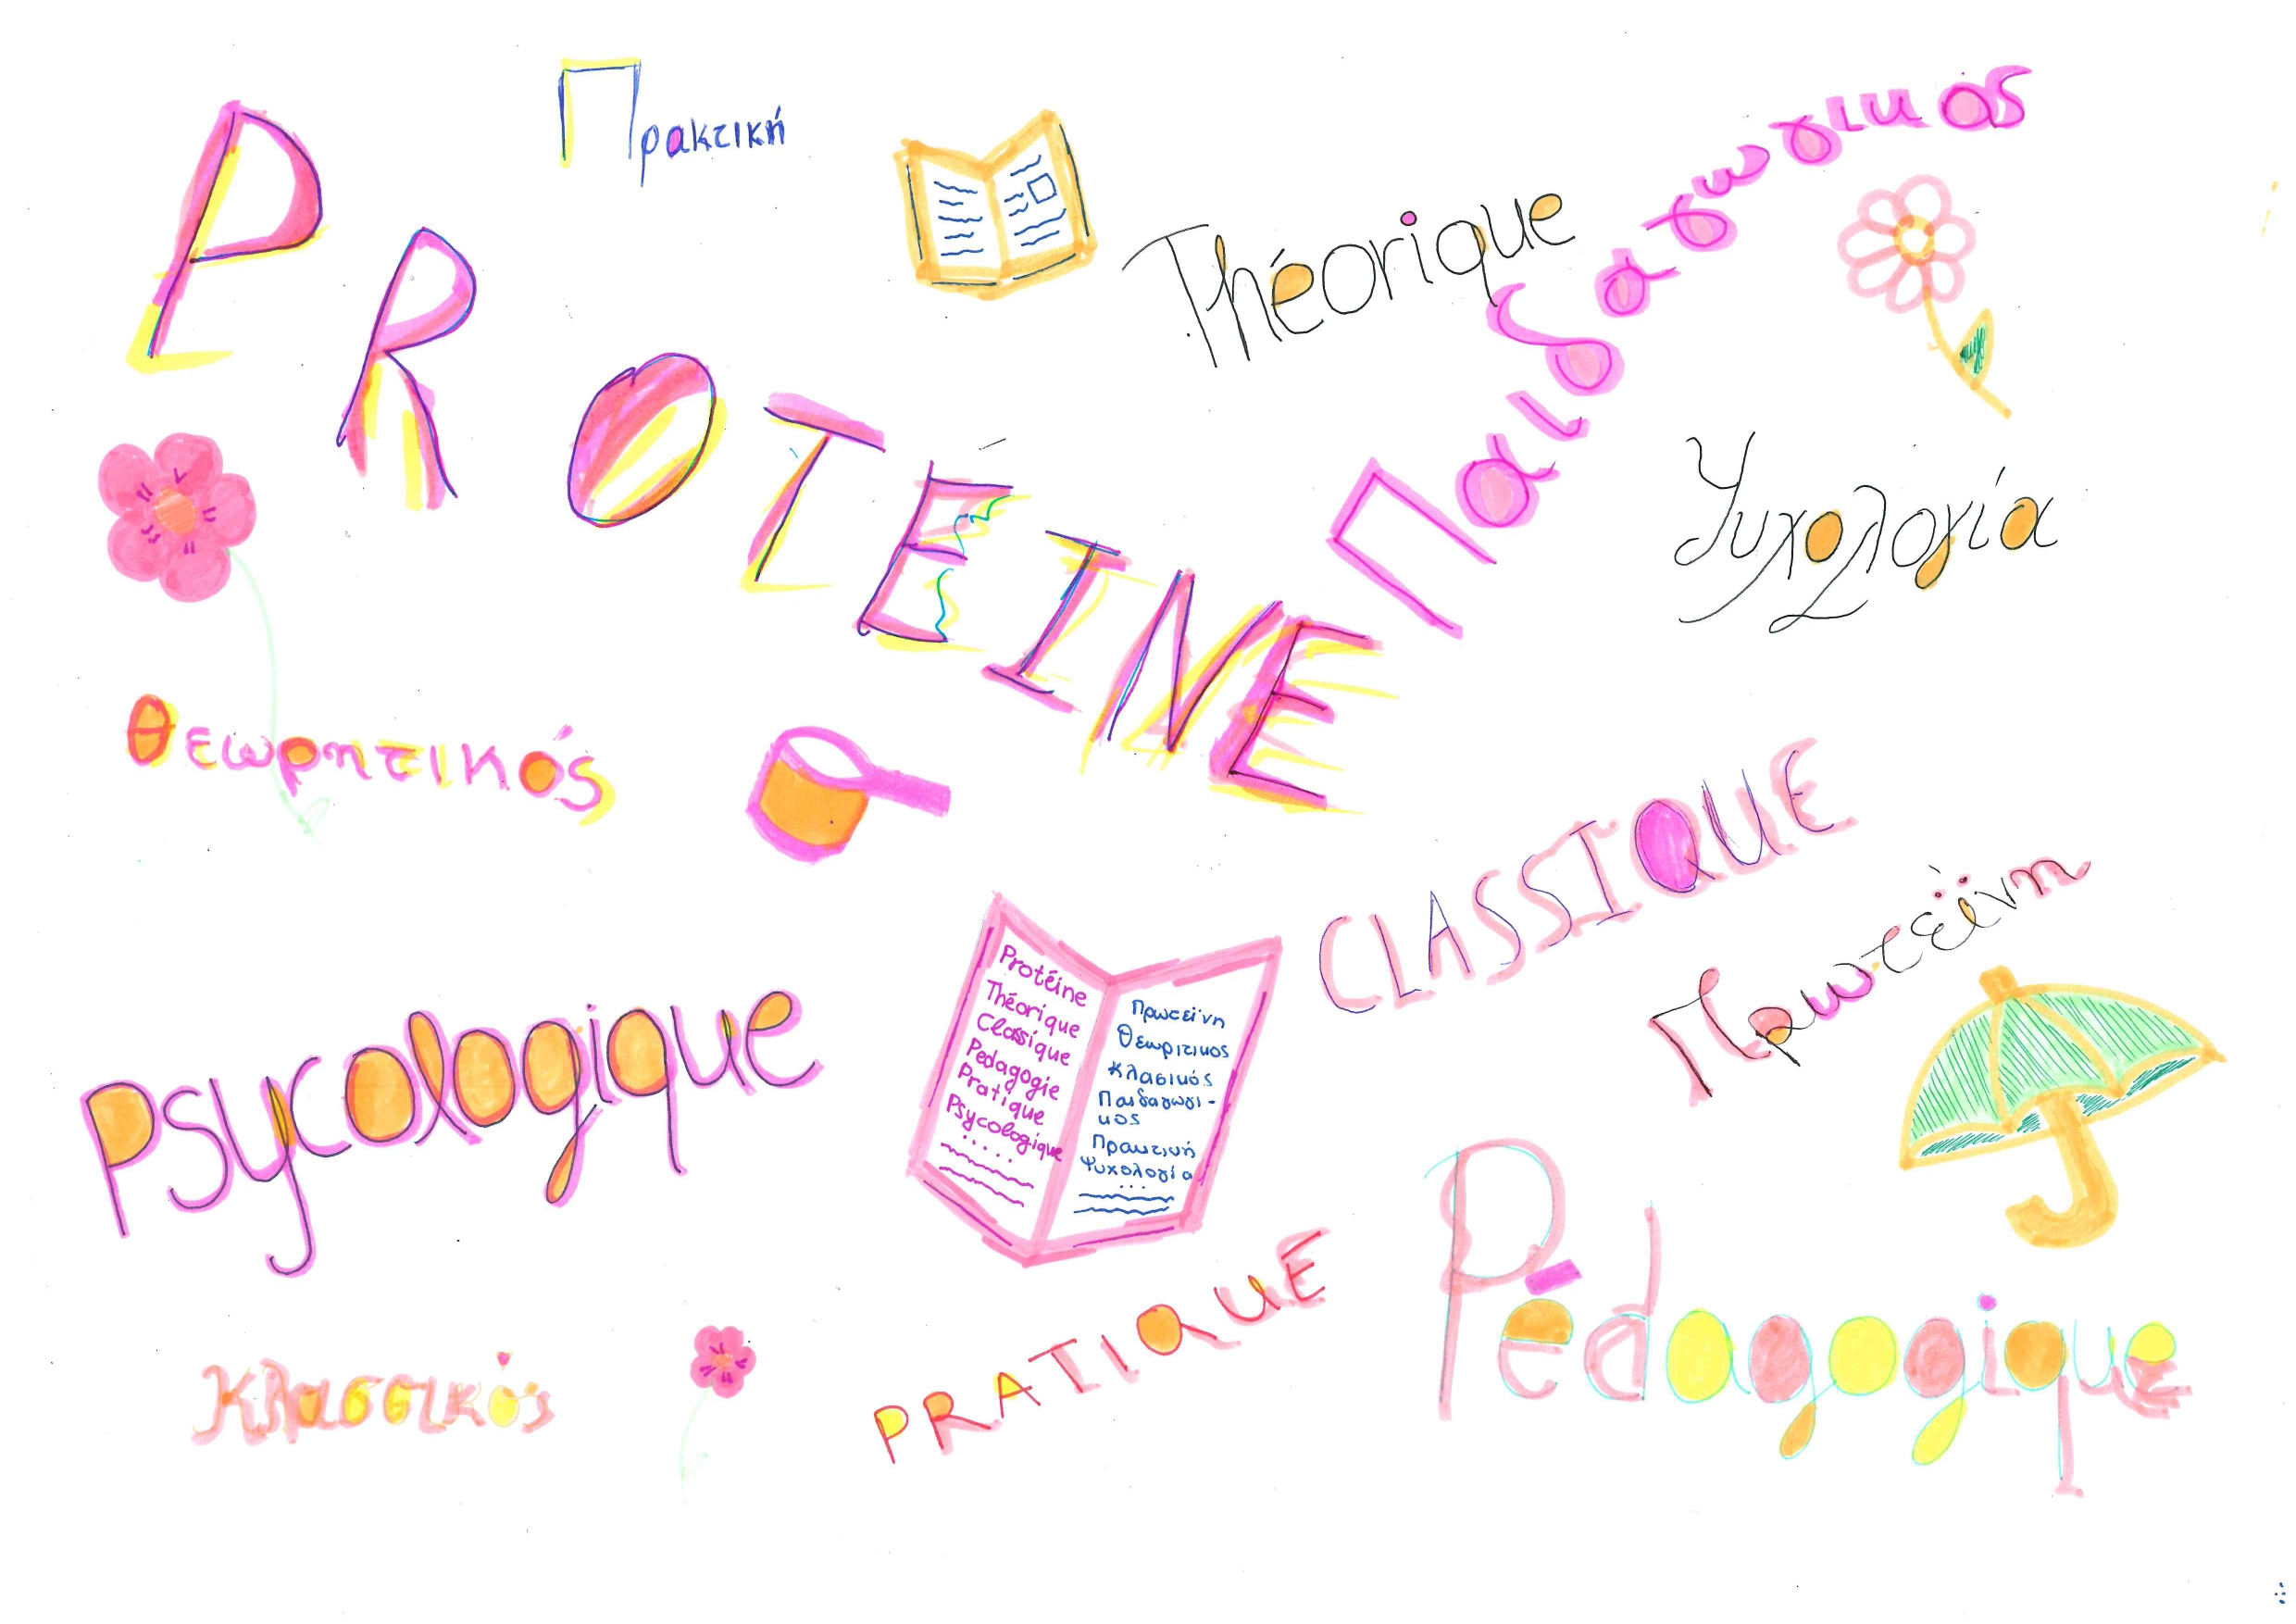 Πρακτική
PROTÉINE
Théorique
Παιδαγωγικος
Ψυχολογία
Θεωρητικός
CLASSIQUE
Πρωτεΐνη
Psycologique
Protéine
Théorique
Classique
Pedagogie
Pratique
Psycologique
....
Πρωτεϊνη
Θεωριτικος
Κλασικός
Παιδαγωγι-
κος
Πρακτική
Ψυχολογία
...
PRATIQUE
Pédagogique
Κλασσικός